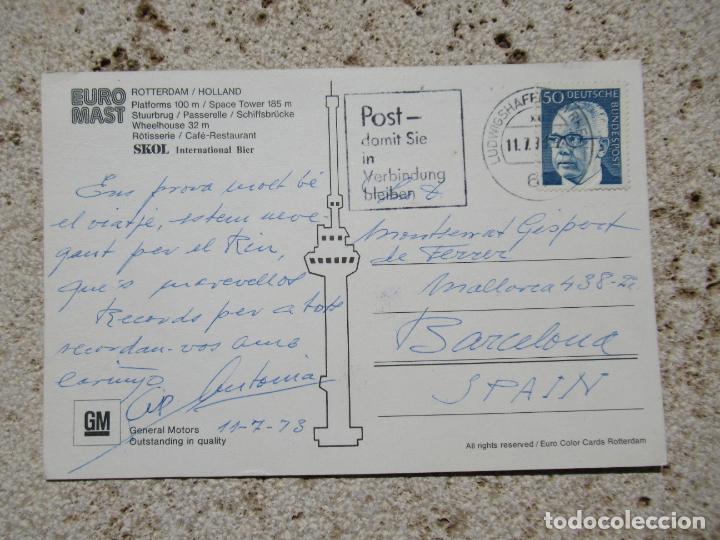 EURO
MAST
ROTTERDAM / HOLLAND
Platforms 100 m / Space Tower 185 m
Stuurbrug / Passerelle / Schiffsbrücke
Wheelhouse 32 m
Rôtisserie / Café-Restaurant
SKOL International Bier
Ens prova molt bé
el viatje, estem nave-
gant per el Rin,
que's maravellos
Records per a tots
recordan-vos amb
cariño
Antonia
11-7-73
GM
General Motors
Outstanding in quality
Post-
damit Sie
in
Verbindung
bleiben
LUDWIGSHAFEN
11.7.7
6
50 DEUTSCHE
BUNDESPOST
Montserrat Gispert
de Ferrer
Mallorca 438-
Barcelona
SPAIN
All rights reserved / Euro Color Cards Rotterdam
todocoleccion
todocoleccion.net